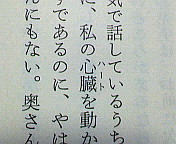 気で話しているうち
に、私の心臓を動か
ハート
ずであるのに、やは
んにもない。奥さん